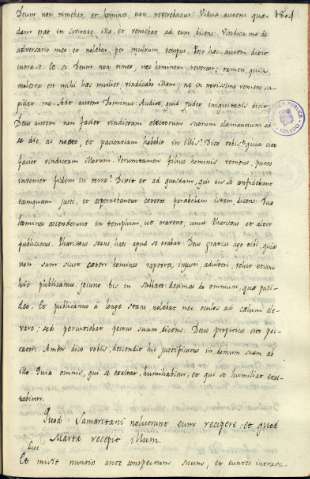 Deum non timebat, et homines non reverebatur. Vidua autem quae
dam erat in civitate illa et veniebat ad eum dicens Vindica me de
adversario meo et nolebat per multum tempus. Post haec autem dixit
intra se Et si Deum non timeo, nec hominem revereor, tamen quia
molesta est mihi haec vidua, vindicabo illam, ne in novissimo veniens su
gillet me. Ait autem Dominus Audite, quid judex iniquitatis dicit
Deus autem non faciet vindictam electorum suorum clamantium ad
se die, ac nocte et patientiam habebit in illis? Dico vobis quia cito
faciet vindictam illorum. Verumtamen filius hominis veniens, putas
inveniet fidem in terra? Dixit et ad quosdam, qui in se confidebant
tamquam justi, et aspernabantur ceteros parabolam istam dicens Duo
homines ascenderunt in templum, ut orarent, unus Pharisaeus et alter
publicanus. Pharisaeus stans haec apud se orabat. Deus gratias ago tibi quia
non sum sicut ceteri hominum raptores, injusti, adulteri, velut etiam
hic publicanus jejuno bis in sabbato decimas do omnium, quae possi
deo. Et publicanus a longe stans nolebat nec oculos ad caelum le
vare; sed percutiebat pectus suum dicens. Deus propitius esto mihi pec
catori. Amen dico vobis, descendit hic justificatus in domum suam ab
illo. Quia omnis, qui se exaltat, humiliabitur, et qui se humiliat exal
tabitur.
Quod Samaritani noluerunt eum recipere, et quod
Marta recepit illum.
Luc
Et misit nuntios ante conspectum suum, et euntes intrave